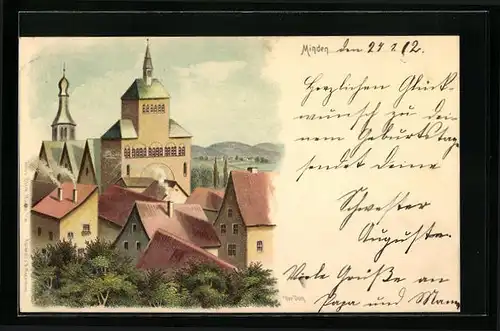 Minden den 24.1.12.
Herzlichen Glück-
wunsch zu dei-
nem Geburtstag
sendet deine
Schwester
Auguste.
Viele Grüße an
Papa und Mama
Der Dom